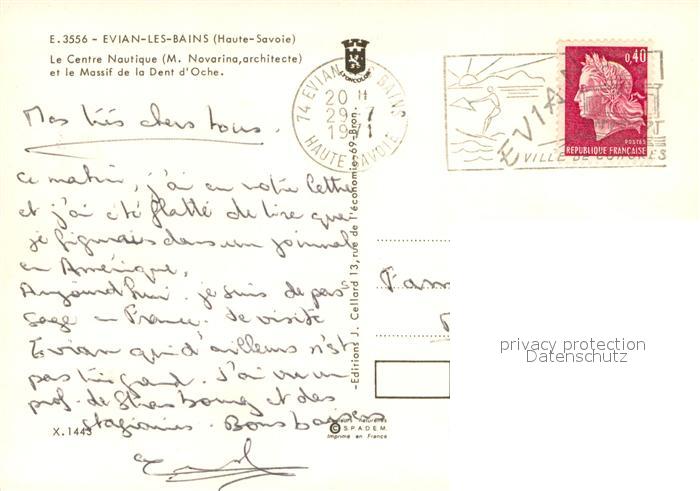 E. 3556 - EVIAN-LES-BAINS (Haute-Savoie)
Le Centre Nautique (M. Novarina, architecte)
et le Massif de la Dent d'Oche.
Mes très chers tous.
Ce matin, j'ai eu votre lettre
et j'ai été flatté de lire que
je figurais dans un journal
en Amérique.
Aujourd'hui je suis de pas-
sage en France. Je visite
Evian qui d'ailleurs n'est
pas très grand. J'ai vu un
prof. de Strasbourg et des
stagiaires. Bons baisers
X.1443
-Editions J. Cellard 13, rue de l'économie-69-Bron.
COMBICOLOR
74 EVIAN LES BAINS
20 H
29-7
1971
HAUTE SAVOIE
EVIAN
VILLE DE CONGRES
0,40
POSTES
REPUBLIQUE FRANÇAISE
Fam
privacy protection
Datenschutz
Couleurs naturelles
© S.P.A.D.E.M.
Imprimé en France